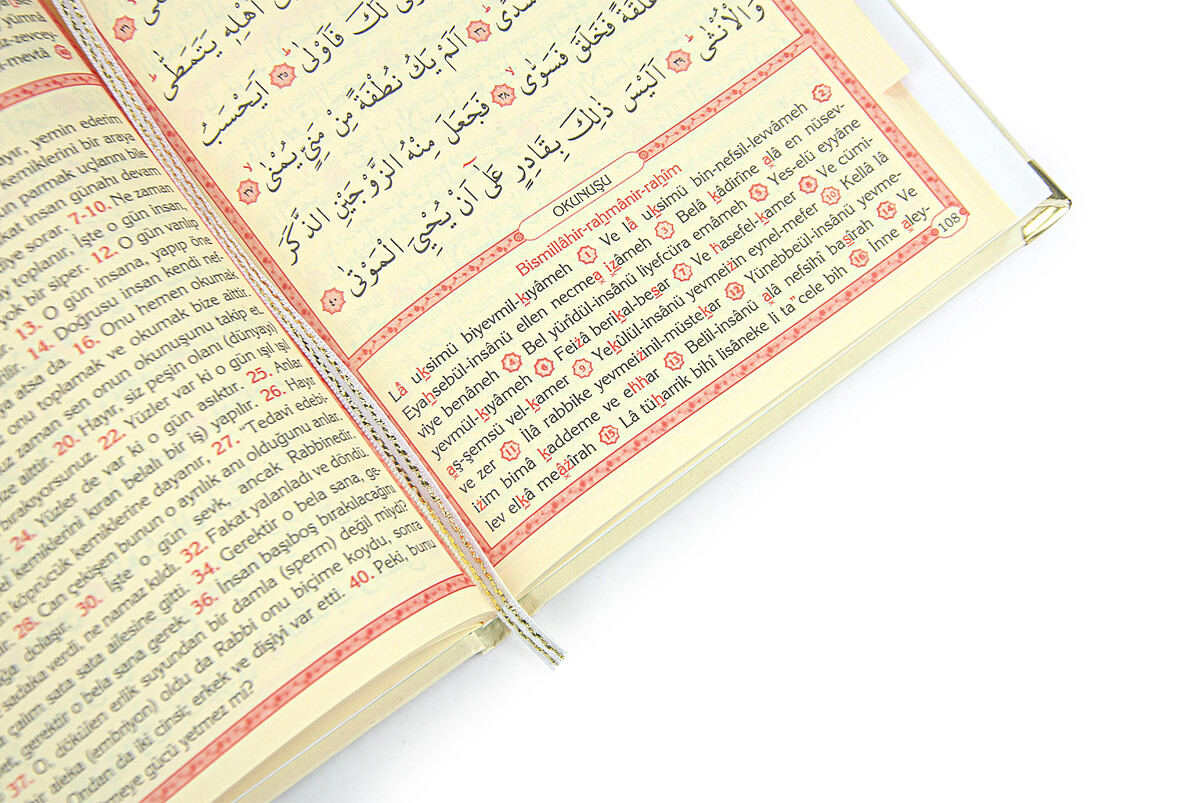 yümnâ
z-zevcey-
-mevtâ
yemin ederim
kemiklerini bir araya
parmak uçlarını bile
insan günahı devam
diye sorar. 7-10. Ne zaman
toplanır, İşte o gün insan,
yok bir siper. 12. O gün varılıp
13. O gün insana, yapıp öne
14. Doğrusu insan kendi nef-
atsa da. 16. Onu hemen okumak
onu toplamak ve okumak bize aittir.
zaman sen onun okunuşunu takip et.
aittir. 20. Hayır, siz peşin olanı (dünyayı)
bırakıyorsunuz. 22. Yüzler var ki o gün ışıl ışıl
24. Yüzler de var ki o gün asıktır. 25. Anlar
kemiklerini kıran belalı bir iş) yapılır. 26. Hayır
köprücük kemiklerine dayanır, 27. "Tedavi edebi-
28. Can çekişen bunun o ayrılık anı olduğunu anlar.
dolaşır. 30. İşte o gün sevk, ancak Rabbinedir.
sadaka verdi, ne namaz kıldı. 32. Fakat yalanladı ve döndü.
çalım sata sata ailesine gitti. 34. Gerektir o bela sana, ge-
gerektir o bela sana gerek. 36. İnsan başıboş bırakılacağını
37. O, dökülen erlik suyundan bir damla (sperm) değil miydi?
bir aleka (embriyon) oldu da Rabbi onu biçime koydu, sonra
Ondan da iki cinsi; erkek ve dişiyi var etti. 40. Peki, bunu
gücü yetmez mi?
٣١ اَهْلِه۪ يَتَمَطّٰى
لَكَ فَاَوْلٰى ٣٥ اَيَحْسَبُ
٣٦ اَلَمْ يَكُ نُطْفَةً مِنْ مَنِيٍّ يُمْنٰى ٣٧
فَخَلَقَ فَسَوّٰى ٣٨ فَجَعَلَ مِنْهُ الزَّوْجَيْنِ الذَّكَرَ
وَالْاُنْثٰى ٣٩ اَلَيْسَ ذٰلِكَ بِقَادِرٍ عَلٰٓى اَنْ يُحْيِيَ الْمَوْتٰى ٤٠
OKUNUŞU
Bismillâhir-rahmânir-rahîm
Lâ uksimü biyevmil-kıyâmeh 1 Ve lâ uksimü bin-nefsil-levvâmeh 2
Eyahsebül-insânü ellen necmea izâmeh 3 Belâ kâdirîne alâ en nüsev-
viye benâneh 4 Bel yürîdül-insânü liyefcüra emâmeh 5 Yes-elü eyyâne
yevmül-kıyâmeh 6 Feizâ berikal-besar 7 Ve hasefel-kamer 8 Ve cümi-
aş-şemsü vel-kamer 9 Yekûlül-insânü yevmeizin eynel-mefer 10 Kellâ lâ
ve zer 11 İlâ rabbike yevmeizinil-müstekar 12 Yünebbeül-insânü yevme-
izim bimâ kaddeme ve ehhar 13 Belil-insânü alâ nefsihî basîrah 14 Ve
lev elkâ meâzîrah 15 Lâ tüharrik bihî lisâneke li ta" cele bih 16 İnne aley-
108